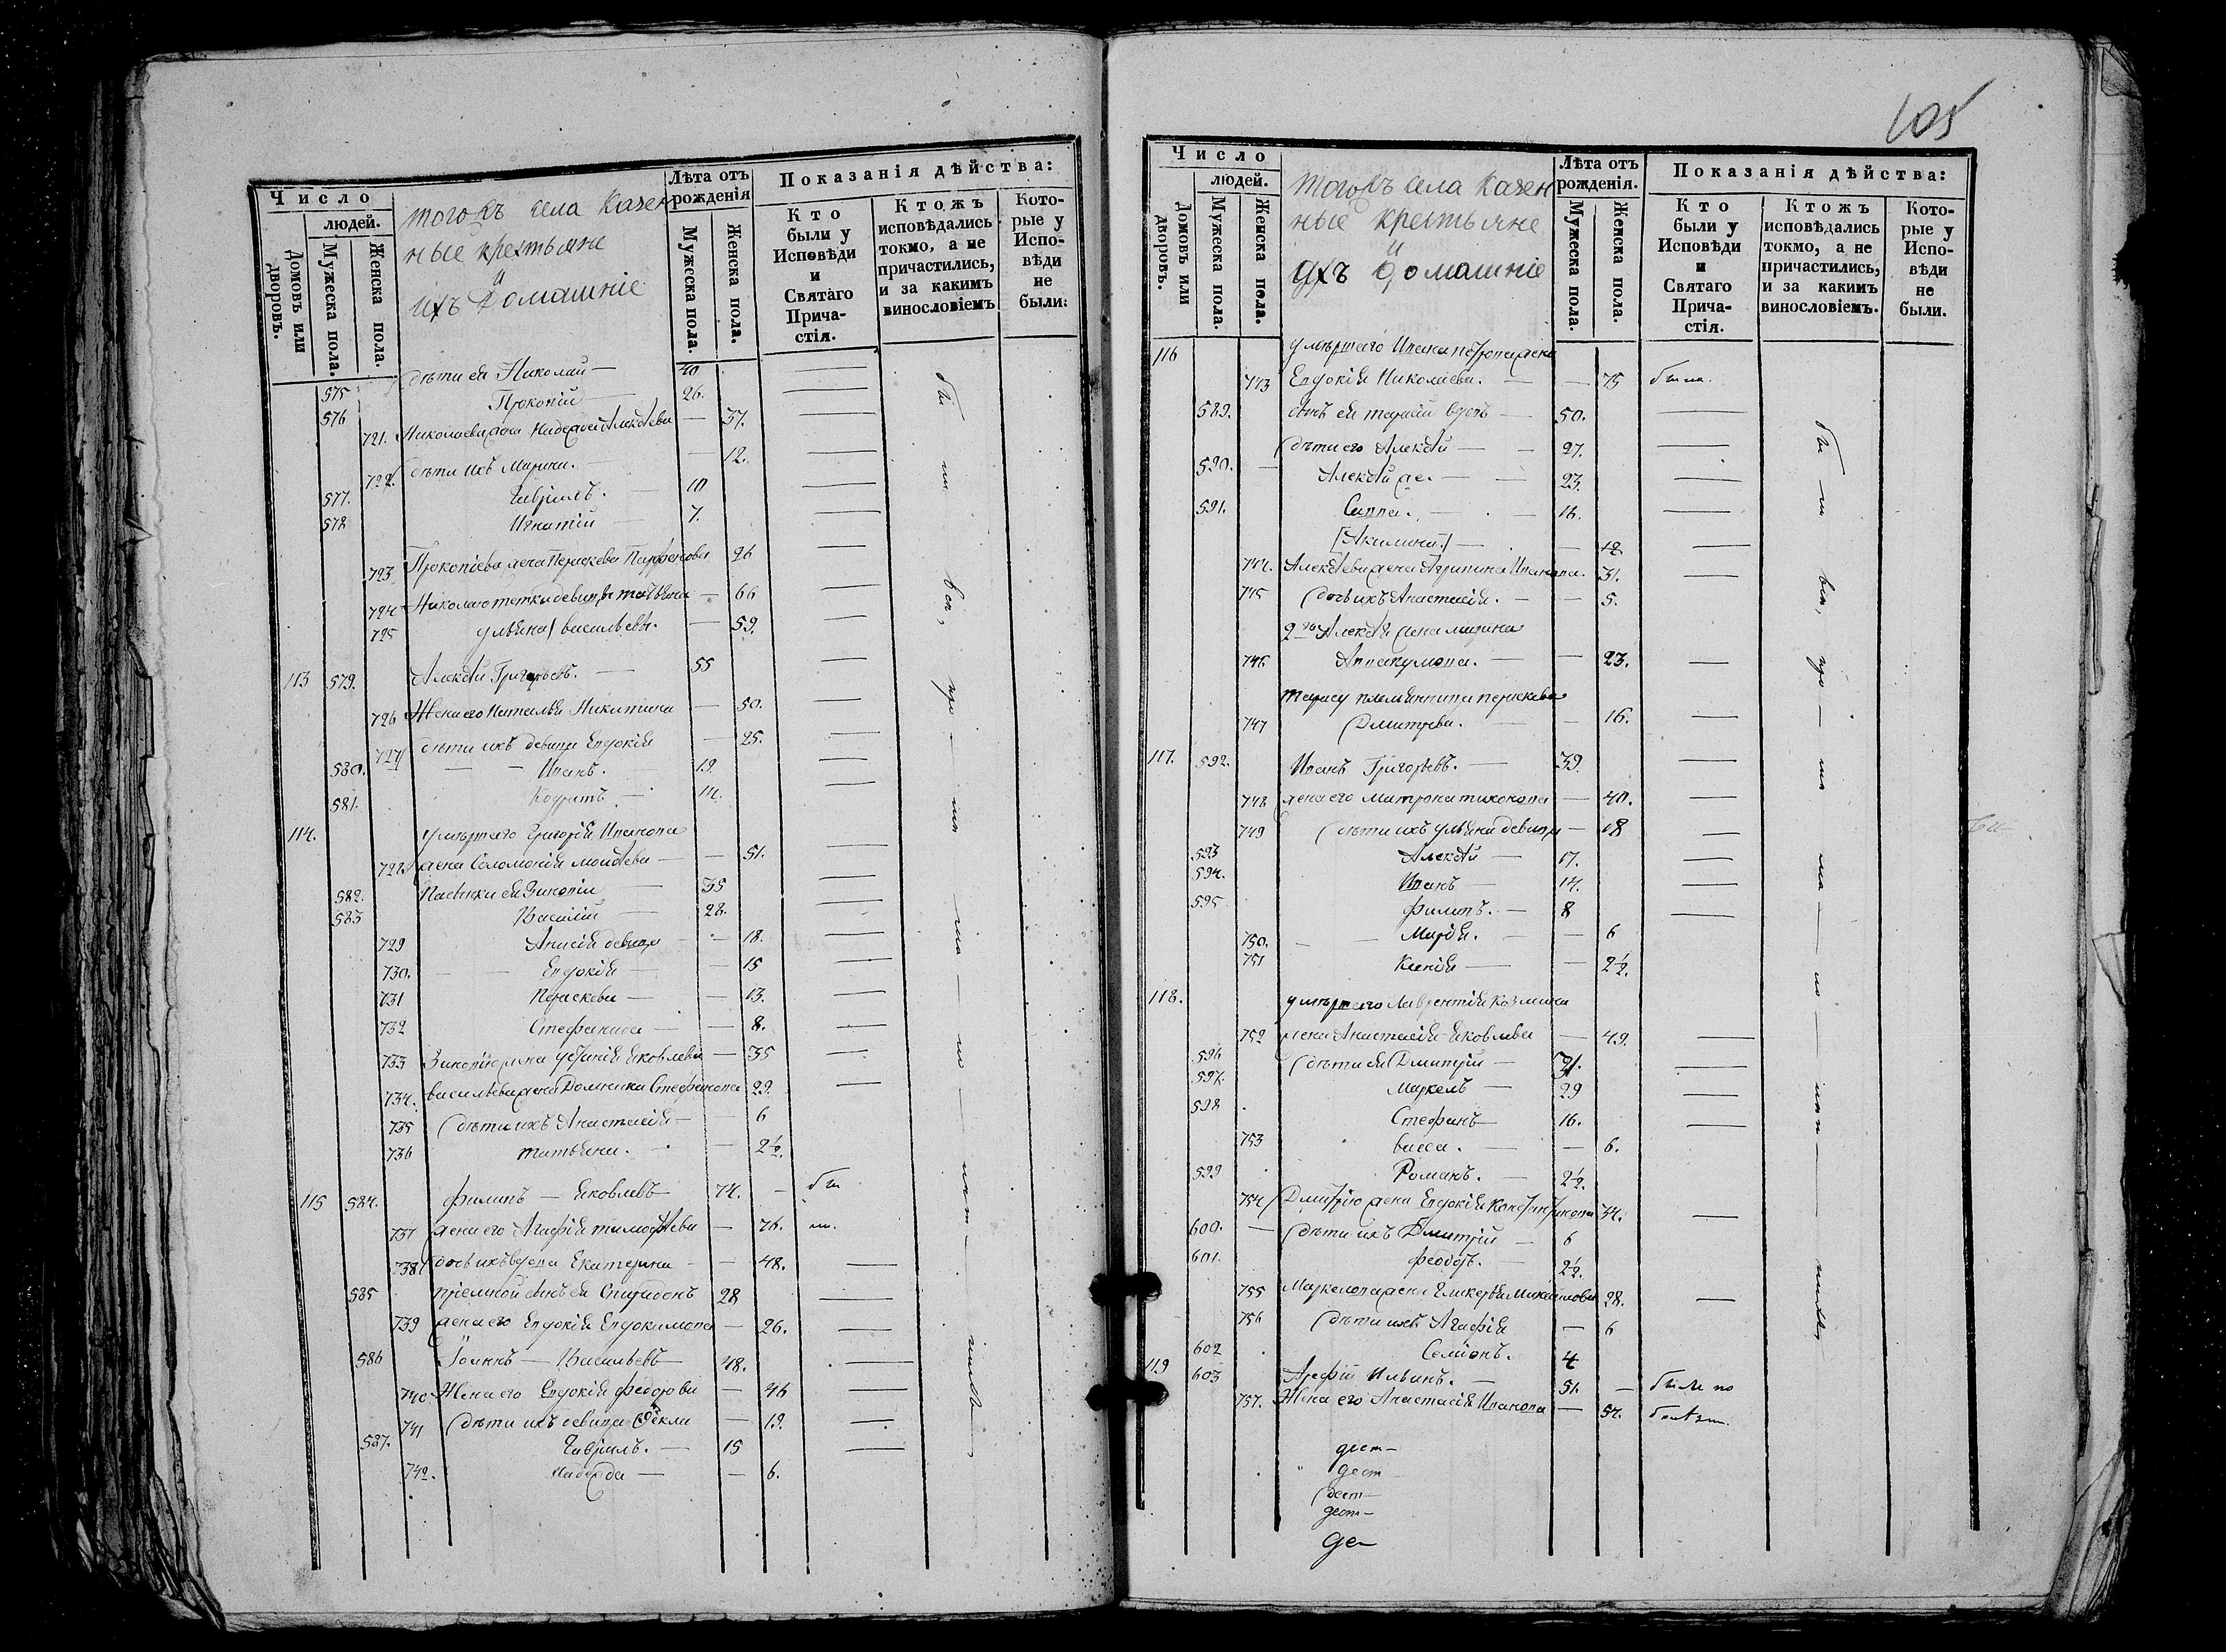 Число
людей.
Домовъ или дворовъ.
Мужеска пола.
Женска пола.
Тогожъ села казен
ные крестьяне
и
ихъ домашніе
Лѣта отъ рожденія
Мужеска пола.
Женска пола.
Показанія дѣйства:
Кто были у Исповѣди и Святаго Причастія.
Ктожъ исповѣдались токмо, а не причастились, и за какимъ винословіемъ
Которые у Исповѣди не были:
575 дѣти ея Николай — 40
576 Прокопій 26.
721. Николаева жена Надежда Алексѣева — 37.
722. дѣти ихъ Марина. — 12.
577. Гаврилъ. — 10
578 Игнатій 7.
723 Прокопіева жена Параскева Парфенова 26
724 Николаю тетки девицы Татіана — 66
725 Ульяна Васильевы. — 59.
113 579. Алексѣй Григорьевъ. — 55
726 Жена его Наталья Никитина — 50.
727 дѣти ихъ девица Евдокія — 25.
580. — — Иванъ. 19.
581. Кодратъ 14.
114. умершаго Григорія Иванова
728 жена Соломонія Моисѣева — — 51.
582. Пасынки ея Зиновій — 35
583 Василій — 28.
729 Анисія девица — 18.
730. — — Евдокія — — 15
731 Параскева — — 13.
732 Стефанида — — 8.
733 Зиновіе жена Устинія Яковлева — 35
734. Васильева жена Домника Стефанова 22.
735 дѣти ихъ Анастасія — 6
736 Татьяна. — 2½.
115 584. Филипъ — Яковлевъ 74. — бы
737 жена его Агафія Тимофѣева — 76. ли.
738 дочь ихъ вдова Екатерина — — 48. —
585 пріемной сынъ ея Спиридонъ 28 —
739 жена его Евдокія Евдокимова — 26. —
586 Іоаннъ — Васильевъ 48. —
740 Жена его Евдокія Федорова — 46 —
741 дѣти ихъ девица Ѳекла — 19. —
587. Гаврилъ. — 15 —
742. Надежда — — 6.
105
Число
людей.
Домовъ или дворовъ.
Мужеска пола.
Женска пола.
Тогожъ села казен
ные крестьяне
и
ихъ домашніе
Лѣта отъ рожденія.
Мужеска пола.
Женска пола.
Показанія дѣйства:
Кто были у Исповѣди и Святаго Причастія.
Ктожъ исповѣдались токмо, а не причастились, и за какимъ винословіемъ.
Которые у Исповѣди не были.
116 умершаго Ивана жена
743 Евдокія Николаева. — — 75 была.
589. сынъ ея Тарасій вдовъ — 50.
дѣти его Алексѣй — — 27.
590. — Алексѣй же. — — 23.
591. Савва. — 16.
[Акилина.] — — 12
744. Алексѣева жена Агрипина Иванова. 31.
745 дочь ихъ Анастасія. — — 5.
2го Алексѣя жена Марина
746. Аввакумова. — — 23.
Тарасу племянница Параскева
747 Дмитрева. — — 16.
117. 592. Иванъ Григорьевъ. — 39.
748 жена его Матрона Тихонова — 40.
749 дѣти ихъ Ульяна девица — 18
593 Алексѣй — 17.
594. Иванъ — 14.
595 Филипъ. — 8
750. — — Марія. — — 6
751 Ксенія — — 2½.
118. умершаго Лаврентія Козмина
752 жена Анастасія Яковлева — 49.
596 дѣти ея Дмитрій — 31.
597. Маркелъ — 29
598 Стефанъ 16.
753 Васса. — — 6.
599 Романъ. — 2½.
754 Дмитрію жена Евдокія Константинова 34.
600. — дѣти ихъ Дмитрій — 6
601. Феодоръ. — 2½.
755 Маркелова жена Гликерія Михайлова 28. —
756 дѣти ихъ Агафія — 6
602 Семіонъ. 4
119 603 Арефій Ильинъ. — 51. — были по
757. Жена его Анастасія Иванова — 54. болѣзн.